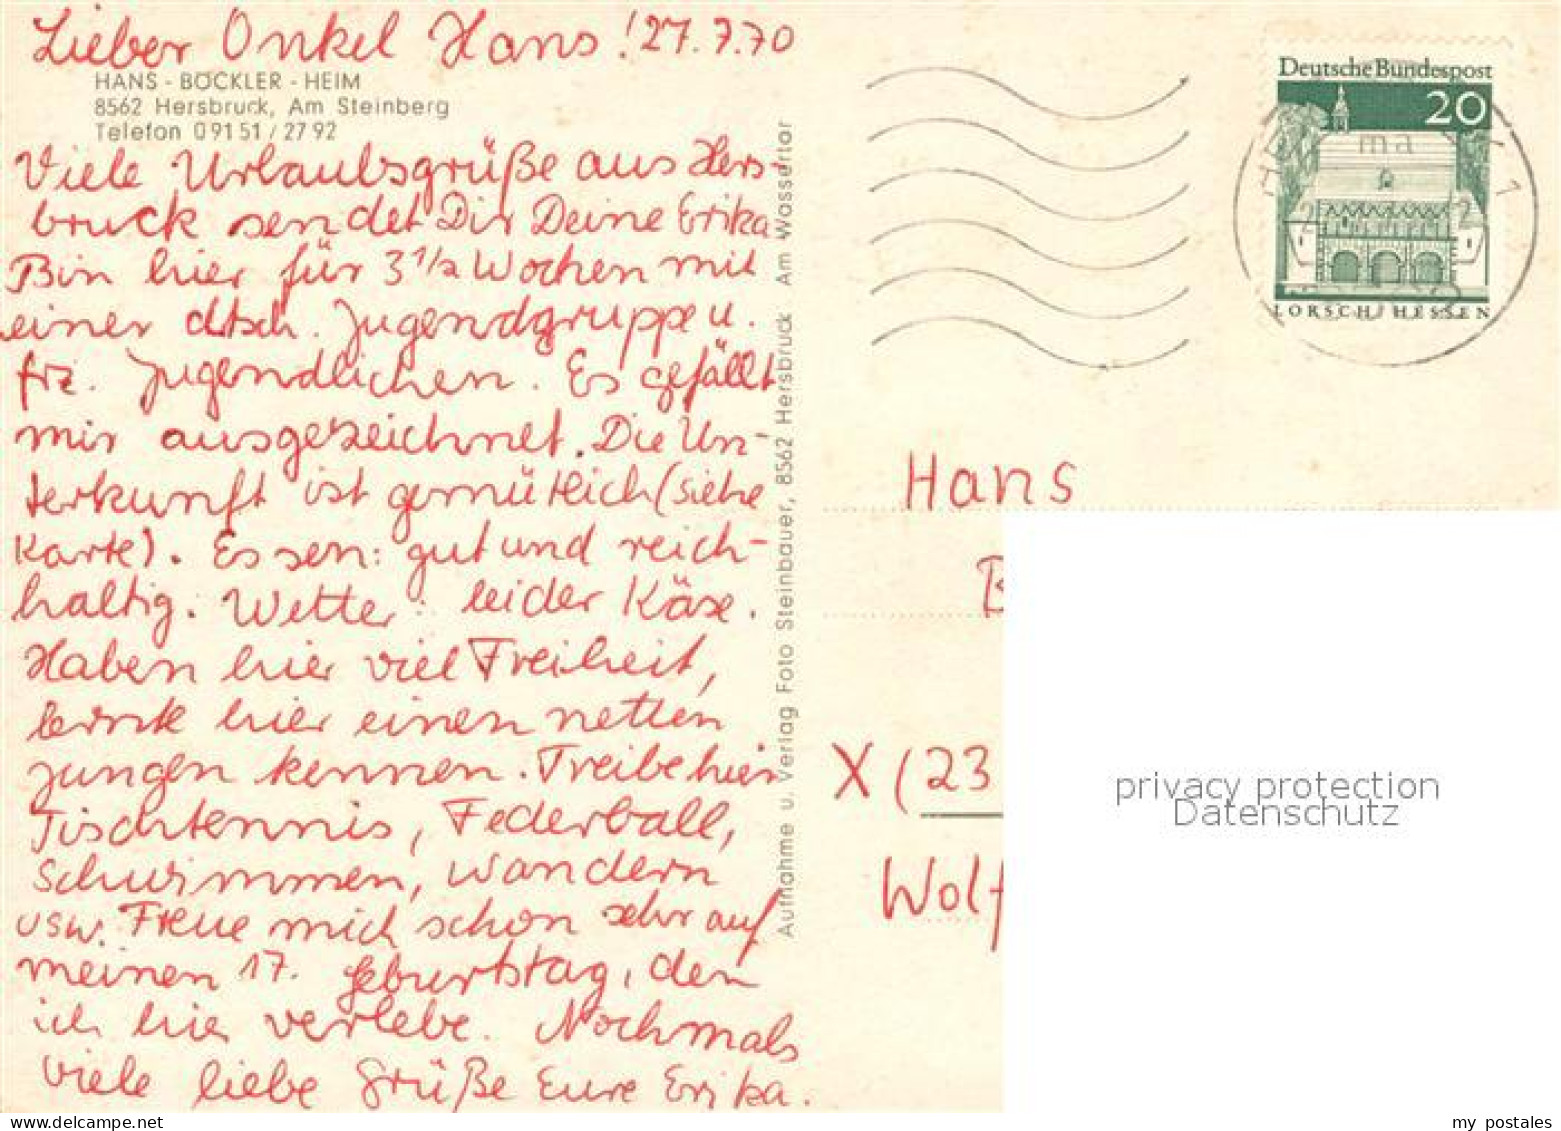 Lieber Onkel Hans! 27.7.70
HANS - BÖCKLER - HEIM
8562 Hersbruck, Am Steinberg
Telefon 09151/2792
Viele Urlaubsgrüße aus Hers-
bruck sendet Dir Deine Erika
Bin hier für 3 1/2 Wochen mit
einer dtsch. Jugendgruppe u.
frz. Jugendlichen. Es gefällt
mir ausgezeichnet. Die Un-
terkunft ist gemütlich (siehe
Karte). Essen: gut und reich-
haltig. Wetter: leider Käse.
Haben hier viel Freiheit,
lernte hier einen netten
jungen kennen. Treibe hier
Tischtennis, Federball,
Schwimmen, wandern
usw. Freue mich schon sehr auf
meinen 17. Geburtstag, den
ich hier verlebe. Nochmals
viele liebe Grüße Eure Erika.
Aufnahme u. Verlag Foto Steinbauer, 8562 Hersbruck Am Wassertor
Deutsche Bundespost
20
LORSCH/HESSEN
Hans
B
X (23
Wolf
privacy protection
Datenschutz
my postales